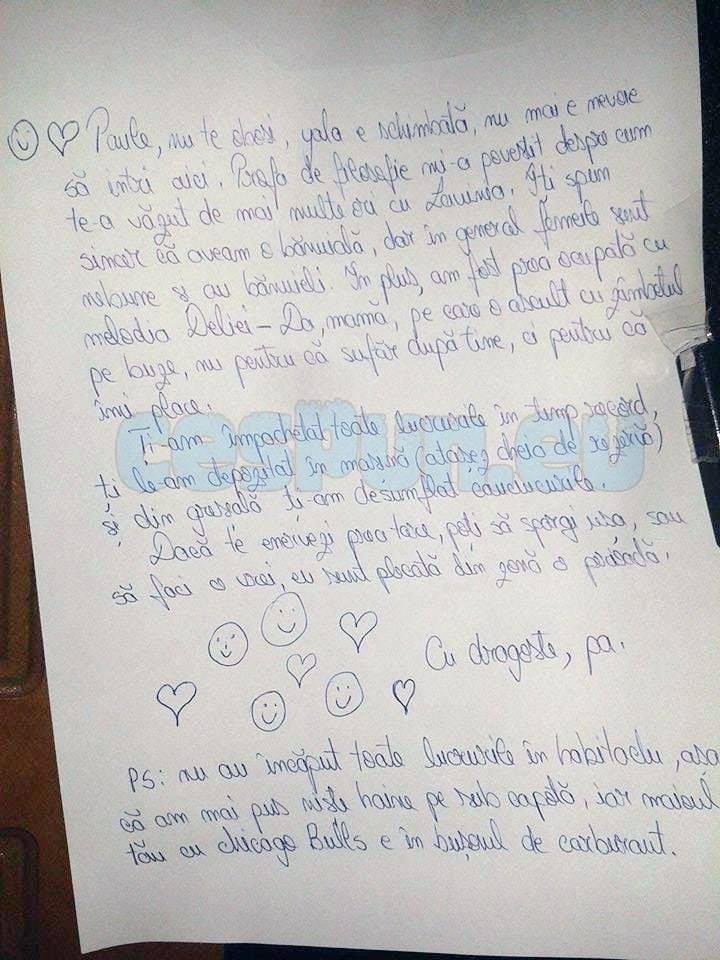 Paule, nu te obosi, yala e schimbată, nu mai e nevoie
să intri aici. Profa de filosofie mi-a povestit despre cum
te-a văzut de mai multe ori cu Lavinia. Iti spun
sincer că aveam o bănuială, dar în general femeile sunt
nebune și au bănuieli. În plus, am fost prea ocupată cu
melodia Deliei - Da, mamă, pe care o ascult cu zâmbetul
pe buze, nu pentru că sufăr după tine, ci pentru că
îmi place.
Ti-am împachetat toate lucrurile în timp record,
ti le-am depozitat în masină (atasez cheia de rezervă)
și din greșală ti-am desumflat cauciucurile.
Dacă te enervezi prea tare, poti să spargi usa, sau
să faci ce vrei, eu sunt plecată din zonă o perioadă.
Cu dragoste, pa.
PS: nu au încăput toate lucrurile în habitaclu, asa
că am mai pus niste haine pe sub capotă, iar maioul
tău cu Chicago Bulls e în bușonul de carburant.
cespun.eu